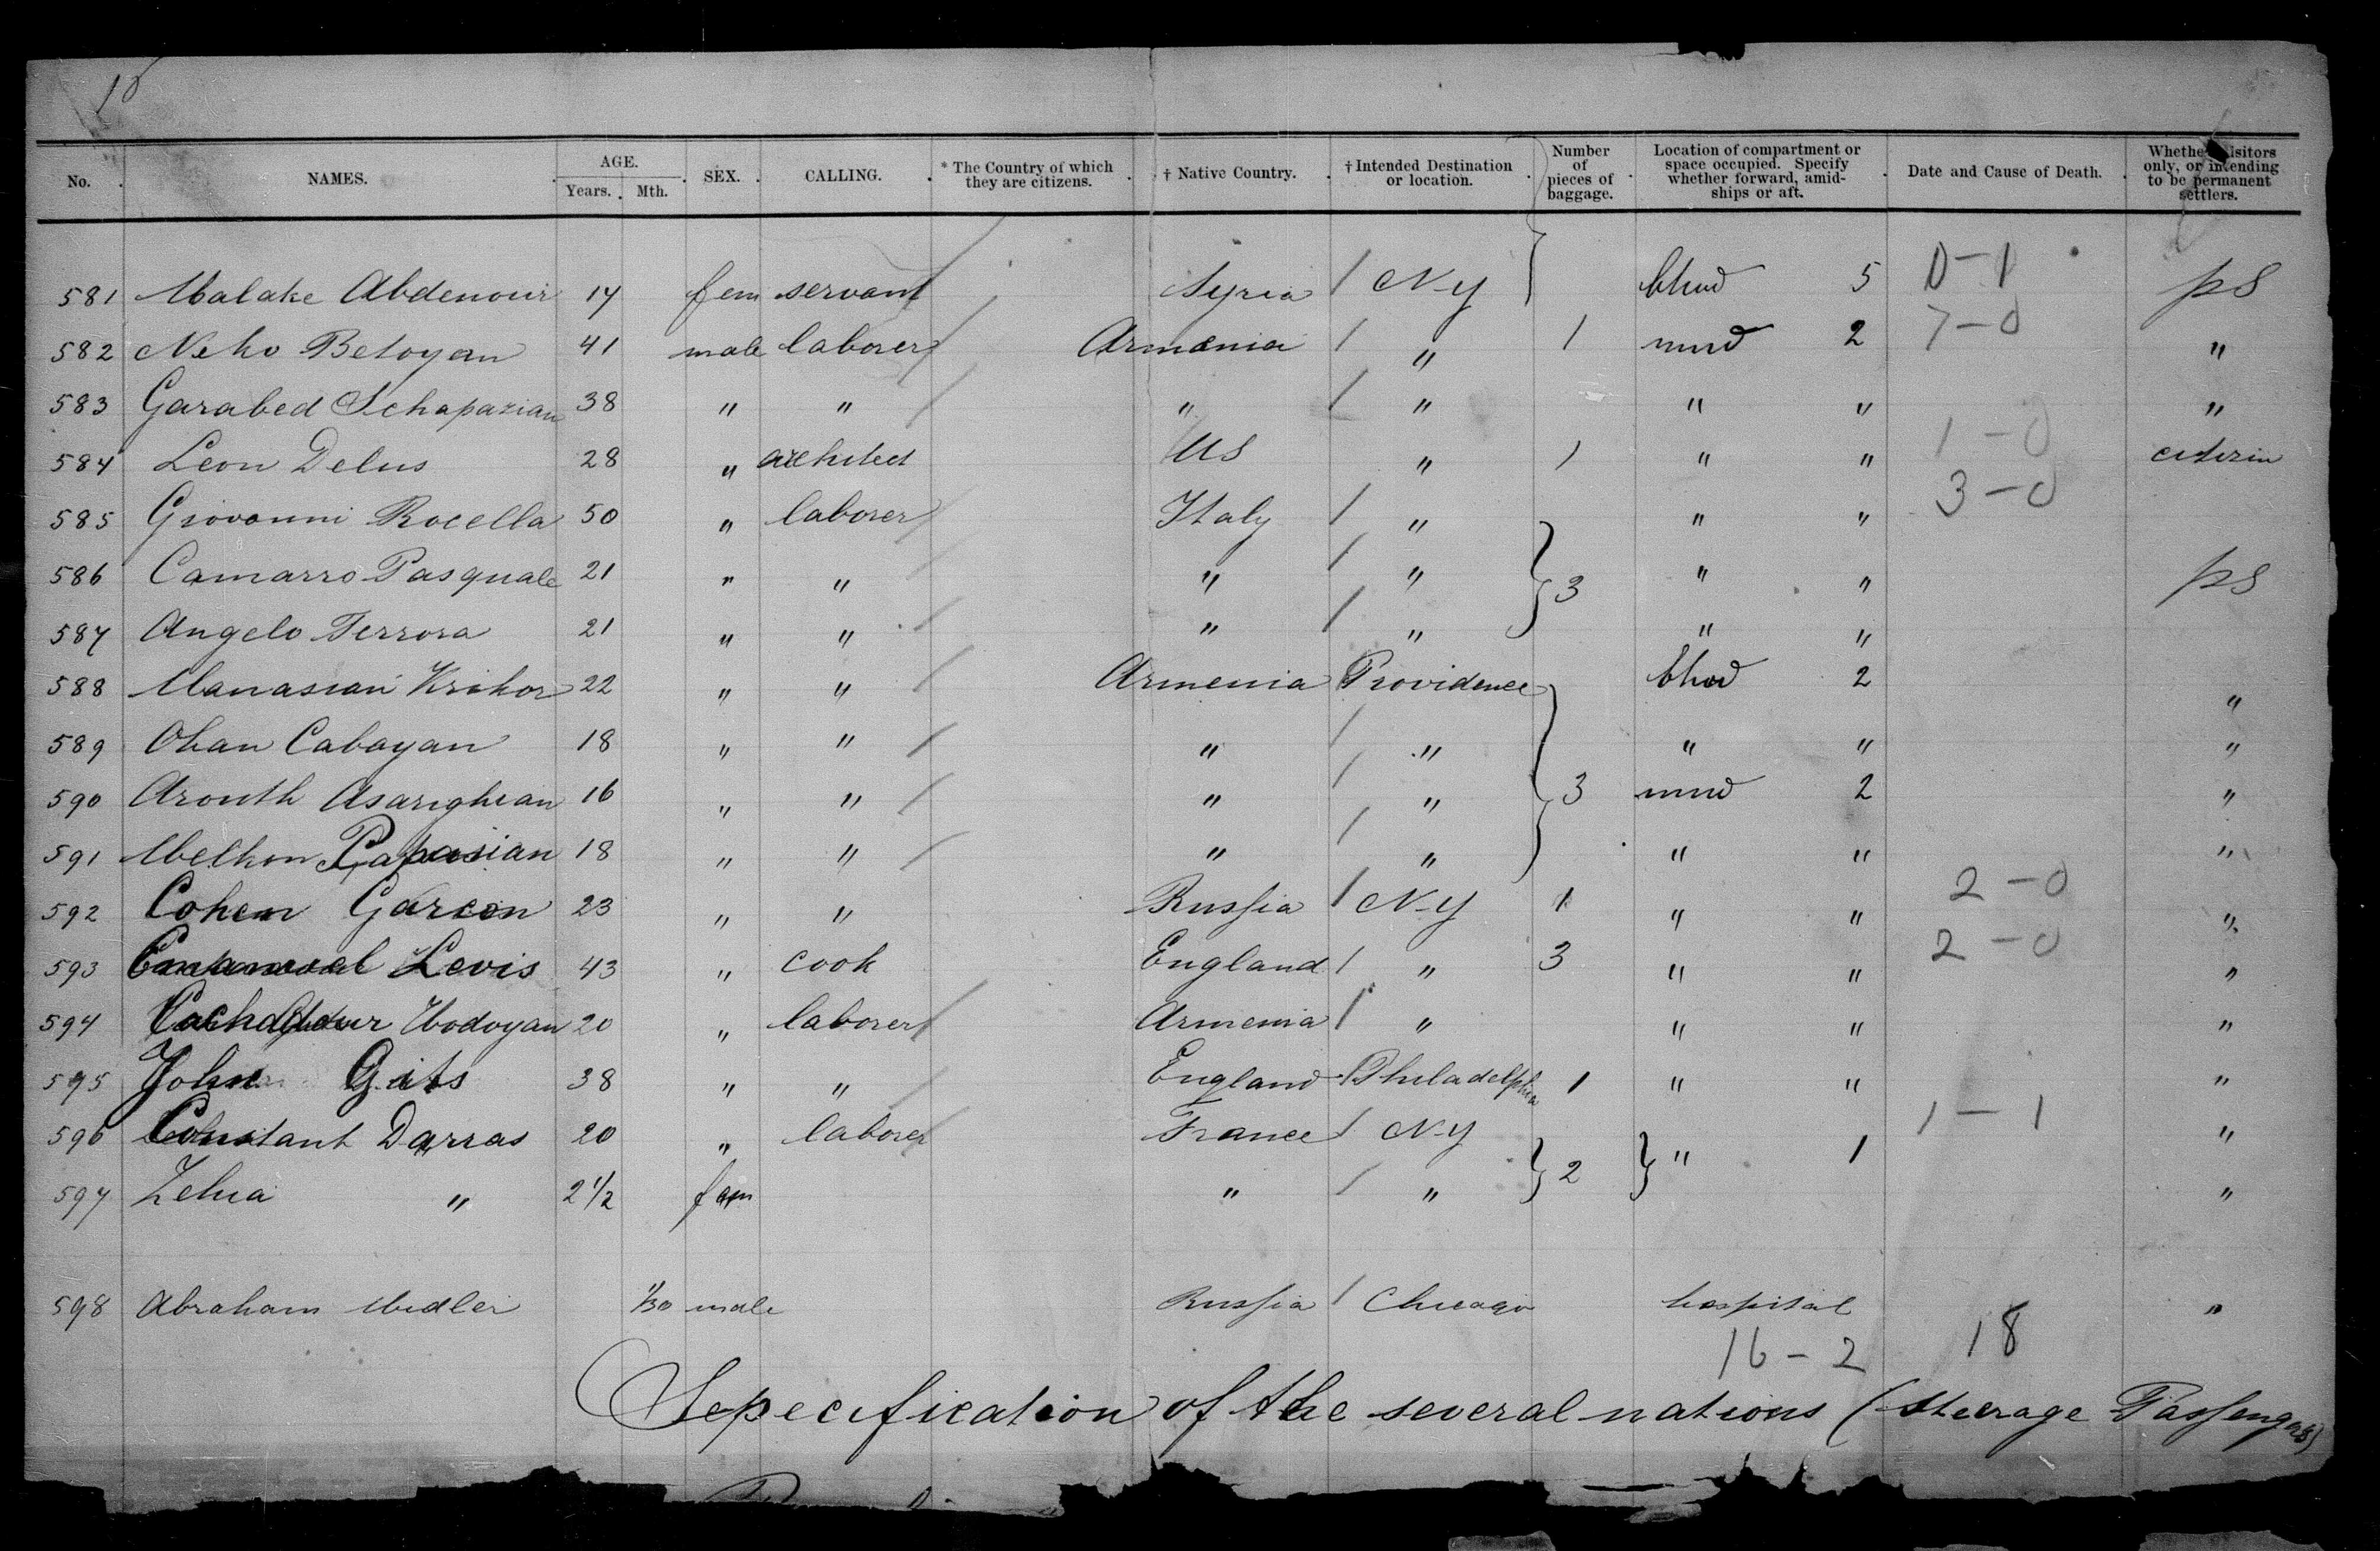 10
No. NAMES. AGE. Years. Mth. SEX. CALLING. * The Country of which they are citizens. † Native Country. † Intended Destination or location. Number of pieces of baggage. Location of compartment or space occupied. Specify whether forward, amidships or aft. Date and Cause of Death. Whether Visitors only, or intending to be permanent settlers.
581 Malake Abdenour 17 fem servant Syria / NY bhwd 5 0-1 ps
582 Neho Betoyan 41 male laborer Armenia / " 1 mwd 2 7-0 "
583 Garabed Schapazian 38 " " " / " " " "
584 Leon Delus 28 " architect US " 1 " " 1-0 citizin
585 Giovanni Rocella 50 " laborer Italy / " " " 3-0
586 Camarro Pasquale 21 " " " / " } 3 " " ps
587 Angelo Terrora 21 " " " / " " "
588 Manasian Krikor 22 " " Armenia Providence bhwd 2 "
589 Ohan Cabayan 18 " " " / " " " "
590 Arouth Asarighian 16 " " " / " } 3 mwd 2 "
591 Melkon Papasian 18 " " " / " " " "
592 Cohen Garcon 23 " " Russia / NY 1 " " 2-0 "
593 Emanuel Levis 43 " cook England / " 3 " " 2-0 "
594 Hodoyan 20 " laborer Armenia / " " " "
595 John Gits 38 " " England Philadelphia 1 " " "
596 Constant Darras 20 " laborer France / NY } 2 } " 1 1-1 "
597 Zelia " 2 1/2 fem " / " "
598 Abraham Midler 1/30 male Russia / Chicago hospital "
16-2 18
Sepecification of the several nations (steerage Passengers)